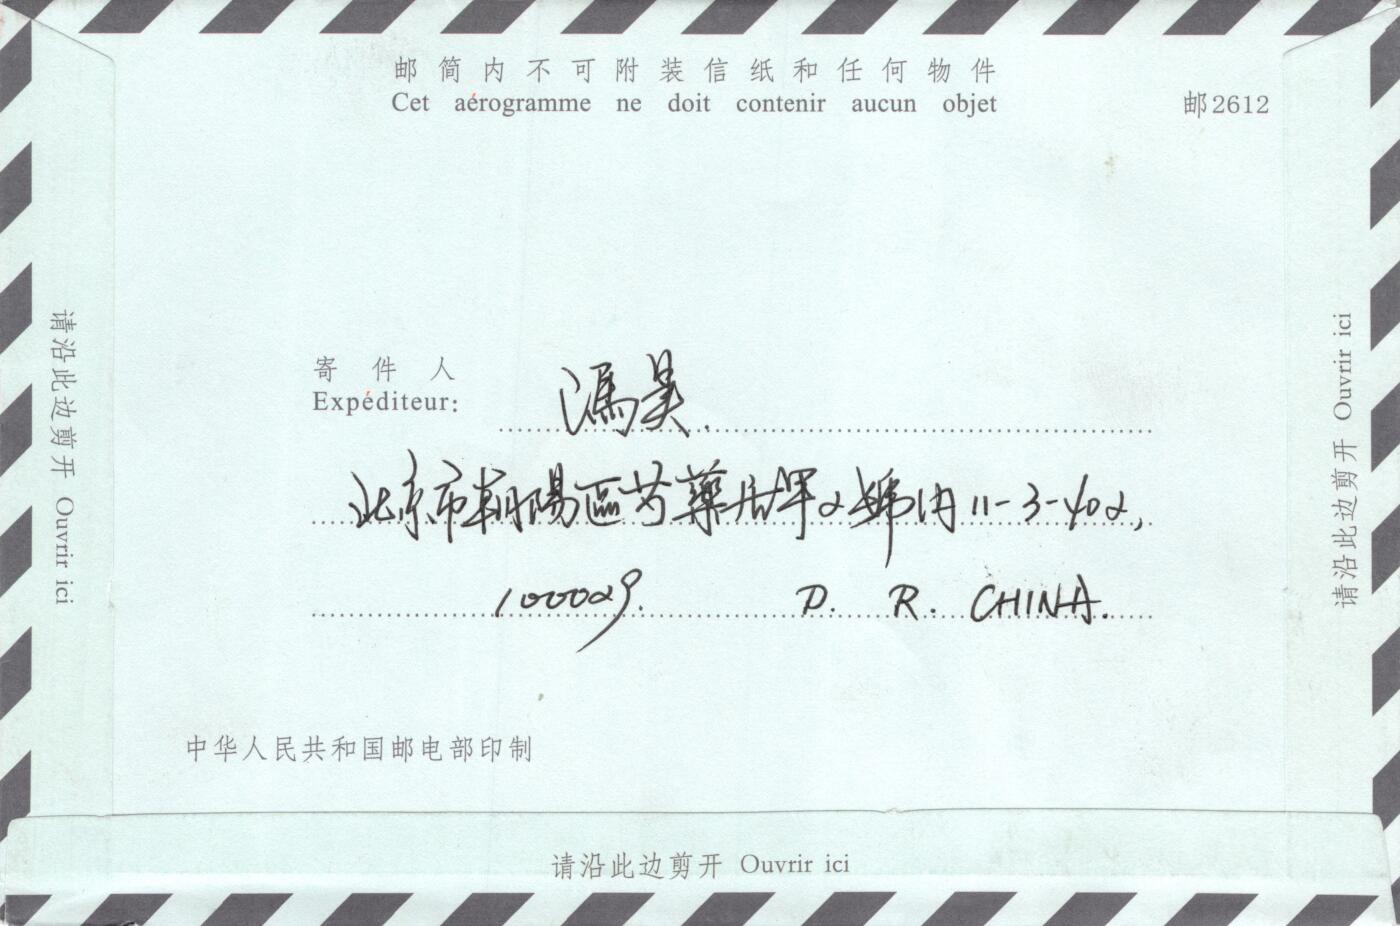 邮简内不可附装信纸和任何物件
Cet aérogramme ne doit contenir aucun objet
邮2612
请沿此边剪开 Ouvrir ici
寄件人
Expéditeur:
馮昊
北京市朝陽區芍藥居甲2號內11-3-402,
100029. P. R. CHINA.
请沿此边剪开 Ouvrir ici
中华人民共和国邮电部印制
请沿此边剪开 Ouvrir ici